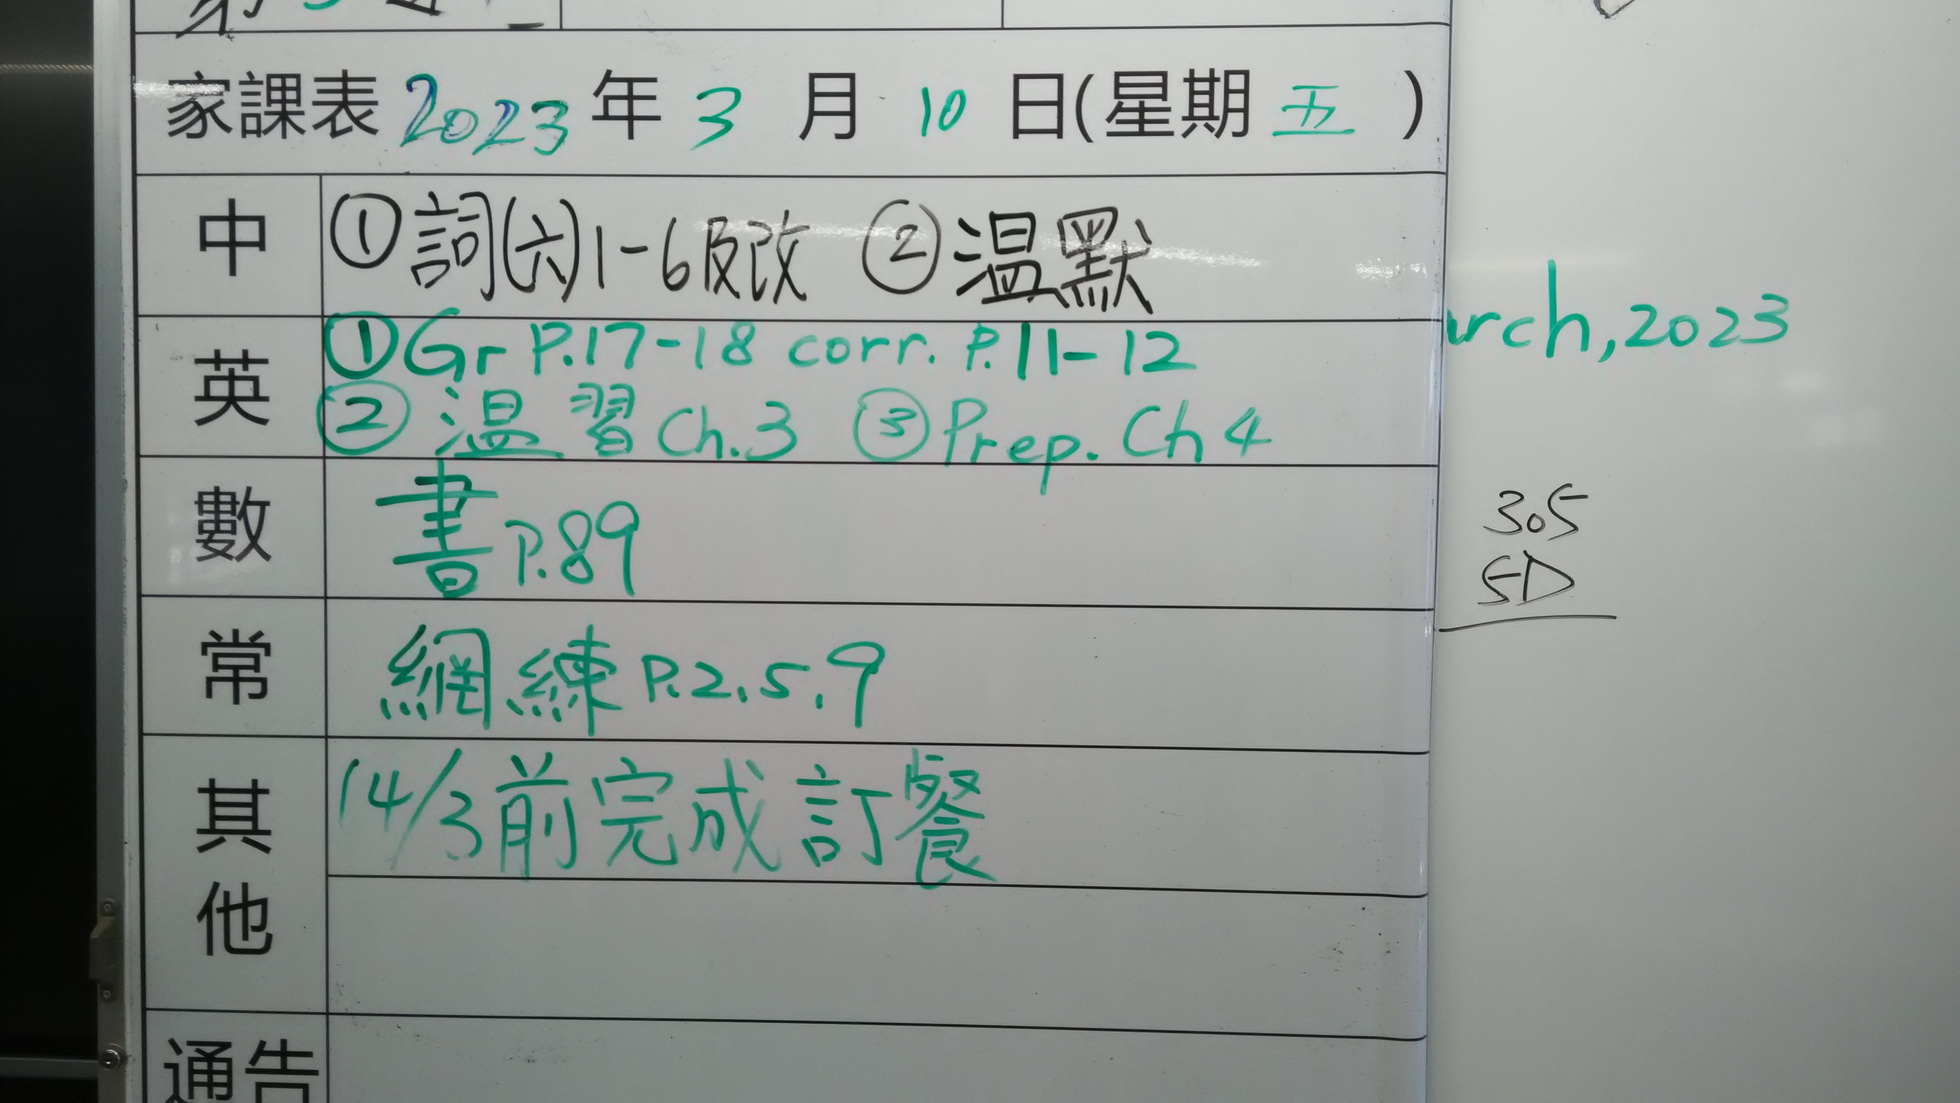 家課表 2023 年 3 月 10 日(星期 五 )
中 ①詞(六)1-6及改 ②温默
英 ①Gr P.17-18 corr. P.11-12
②温習Ch.3 ③Prep. Ch4
數 書P.89
常 網練P.2,5,9
其他 14/3前完成訂餐
通告
arch,2023
305
5D